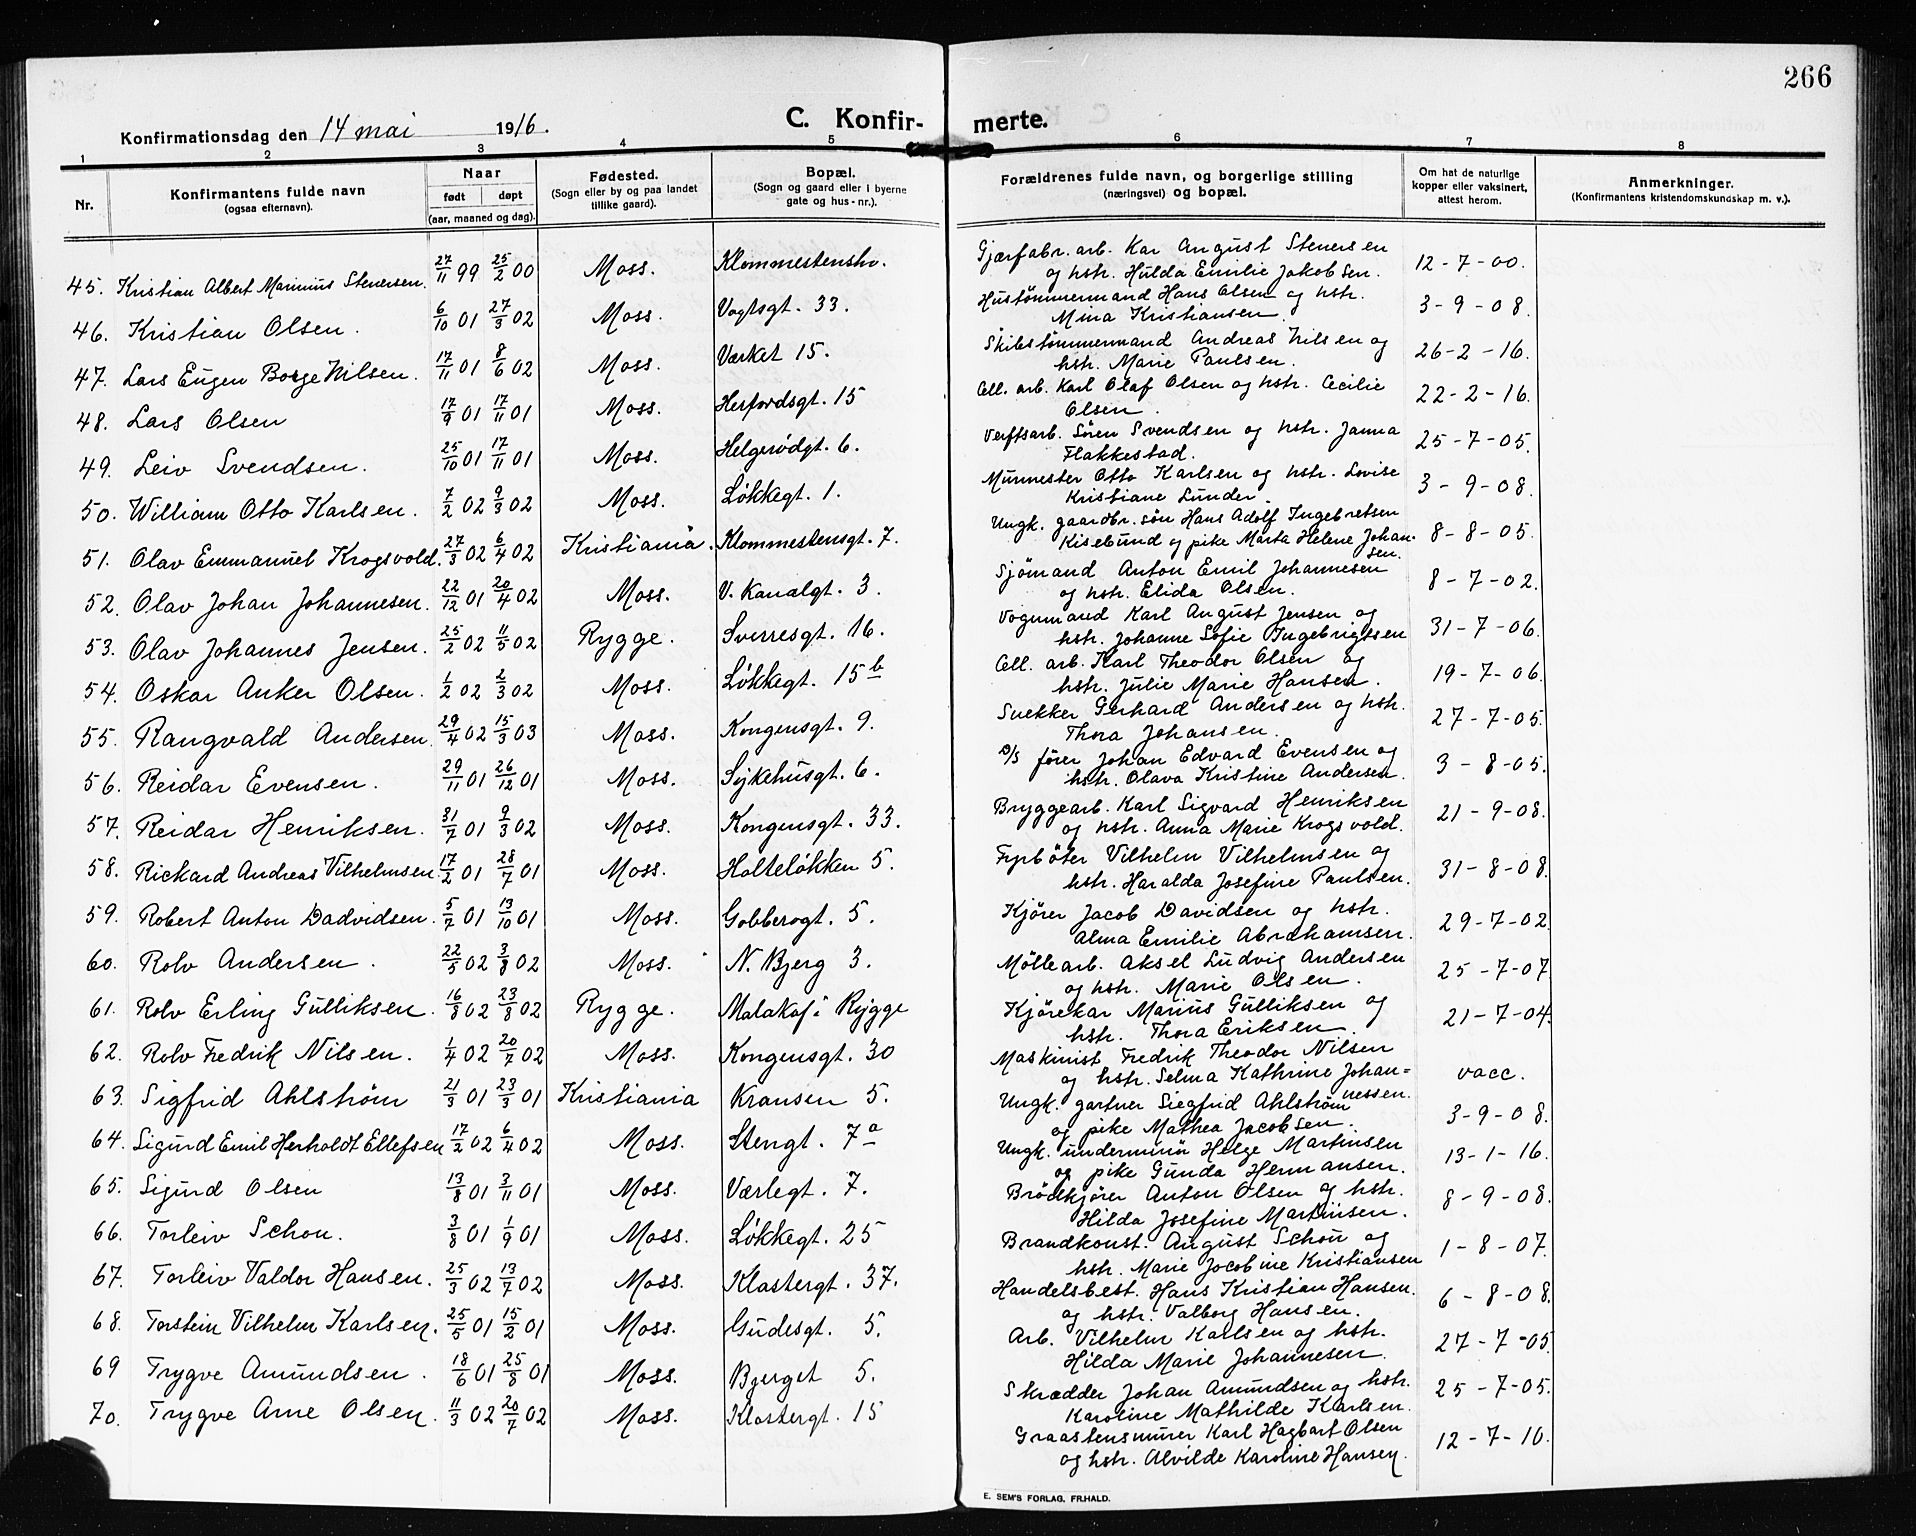 266
Konfirmationsdag den 14 mai 1916. C. Konfir- merte.
1 2 3 4 5 6 7 8
Nr. Konfirmantens fulde navn (ogsaa efternavn). Naar født døpt (aar, maaned og dag). Fødested. (Sogn eller by og paa landet tillike gaard). Bopæl. (Sogn og gaard eller i byerne gate og hus-nr.). Forældrenes fulde navn, og borgerlige stilling (næringsvei) og bopæl. Om hat de naturlige kopper eller vaksinert, attest herom. Anmerkninger. (Konfirmantens kristendomskundskap m. v.).
45. Kristian Albert Marinius Stenersen. 27/11 99 25/2 00 Moss. Klommestensho. Gjærfabr. arb. Kar August Stenersen og hstr. Hulda Emilie Jakobsen. 12-7-00.
46. Kristian Olsen. 6/10 01 27/3 02 Moss. Vogtsgt. 33. Hustømmermand Hans Olsen og hstr. Mina Kristiansen. 3-9-08.
47. Lars Eugen Borge Nilsen. 17/11 01 8/6 02 Moss. Værket 15. Skibstømmermand Andreas Nilsen og hstr. Marie Paulsen. 26-2-16.
48. Lars Olsen 17/9 01 17/11 01 Moss. Herfordsgt. 15 Cell. arb. Karl Olaf Olsen og hstr. Cecilie Olsen. 22-2-16.
49. Leiv Svendsen. 25/10 01 17/11 01 Moss. Helgerødgt. 6. Verftsarb. Søren Svendsen og hstr. Janna Flakkestad. 25-7-05.
50. William Otto Karlsen. 7/2 02 9/3 02 Moss. Løkkegt. 1. Murmester Otto Karlsen og hstr. Lovise Kristiane Lunder. 3-9-08.
51. Olav Emmanuel Krogsvold. 27/3 02 6/4 02 Kristiania. Klommestensgt. 7. Ungk. gaardbr. søn Hans Adolf Ingebretsen Kisebund og pike Marta Helene Johansen. 8-8-05.
52. Olav Johan Johannesen. 22/12 01 20/4 02 Moss. V. Kanalgt. 3. Sjømand Anton Emil Johannesen og hstr. Elida Olsen. 8-7-02.
53. Olav Johannes Jensen. 25/2 02 11/5 02 Rygge. Sverresgt. 16. Vognmand Karl August Jensen og hstr. Johanne Sofie Ingebrigtsen 31-7-06.
54. Oskar Anker Olsen. 1/2 02 2/3 02 Moss. Løkkegt. 15 b Cell. arb. Karl Theodor Olsen og hstr. Julie Marie Hansen. 19-7-06.
55. Rangvald Andersen. 29/4 02 15/3 03 Moss. Kongensgt. 9. Snekker Gerhard Andersen og hstr. Thora Johansen. 27-7-05.
56. Reidar Evensen. 29/11 01 26/12 01 Moss. Sykehusgt. 6. D/S fører Johan Edvard Evensen og hstr. Olava Kristine Andersen. 3-8-05.
57. Reidar Henriksen. 31/7 01 9/3 02 Moss. Kongensgt. 33. Bryggearb. Karl Sigvard Henriksen og hstr. Anna Marie Krogsvold. 21-9-08.
58. Rickard Andreas Vilhelmsen. 17/2 01 28/7 01 Moss. Holteløkken 5. Fyrbøter Vilhelm Vilhelmsen og hstr. Haralda Josefine Paulsen. 31-8-08.
59. Robert Anton Dadvidsen. 5/7 01 13/10 01 Moss. Gobberogt. 5. Kjører Jacob Davidsen og hstr. Alma Emilie Abrahamsen. 29-7-02
60. Rolv Andersen. 22/5 02 3/8 02 Moss. N. Bjerg 3. Møllearb. Aksel Ludvig Andersen og hstr. Marie Olsen. 25-7-07
61. Rolv Erling Gulliksen. 16/8 02 23/8 02 Rygge. Malakof i Rygge Kjørekar Marius Gulliksen og hstr. Thora Eriksen. 21-7-04.
62. Rolv Fredrik Nilsen. 1/4 02 20/7 02 Moss. Kongensgt. 30 Maskinist Fredrik Theodor Nilsen og hstr. Selma Kathrine Johan=nessen. vacc.
63. Sigfrid Ahlstrøm 21/3 01 23/3 01 Kristiania Kransen 5. Ungk. gartner Siegfrid Ahlstrøm og pike Mathea Jacobsen. 3-9-08.
64. Sigurd Emil Herholdt Ellefsen 17/2 02 6/4 02 Moss. Stengt. 7 a Ungk. underminør Helge Martinsen og pike Gunda Hermansen. 13-1-16.
65. Sigurd Olsen 13/8 01 3/11 01 Moss. Værlegt. 7. Brødkjører Anton Olsen og hstr. Hilda Josefine Martinsen. 8-9-08.
66. Torleiv Schou. 3/8 01 1/9 01 Moss. Løkkegt. 25 Brandkonst. August Schou og hstr. Marie Jacobine Kristiansen 1-8-07.
67. Torleiv Valdor Hansen. 25/3 02 13/7 02 Moss. Klostergt. 37. Handelsbest. Hans Kristian Hansen. og hstr. Valborg Hansen. 6-8-08.
68. Torstein Vilhelm Karlsen. 25/5 01 15/2 01 Moss. Gudesgt. 5. Arb. Vilhelm Karlsen og hstr. Hilda Marie Johannesen. 27-7-05
69 Trygve Amundsen. 18/6 01 25/8 01 Moss. Bjerget 5. Skrædder Johan Amundsen og hstr. Karoline Mathilde Karlsen. 25-7-05.
70. Trygve Arne Olsen. 11/3 02 20/7 02 Moss. Klostergt. 15 Graastensmurer Karl Hagbart Olsen og hstr. Alvilde Karoline Hansen. 12-7-10.
E. SEM'S FORLAG, FR.HALD.